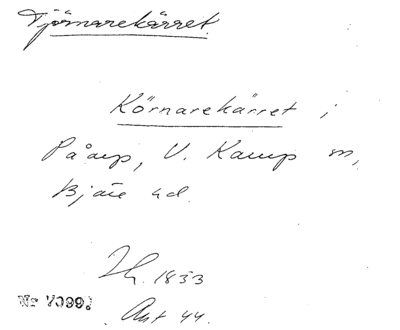 Tjörnarekärret.
Körnarekärret i
Påarp, V. Karup sn,
Bjäre hd.
1833
Nr 7099.
Akt 44.